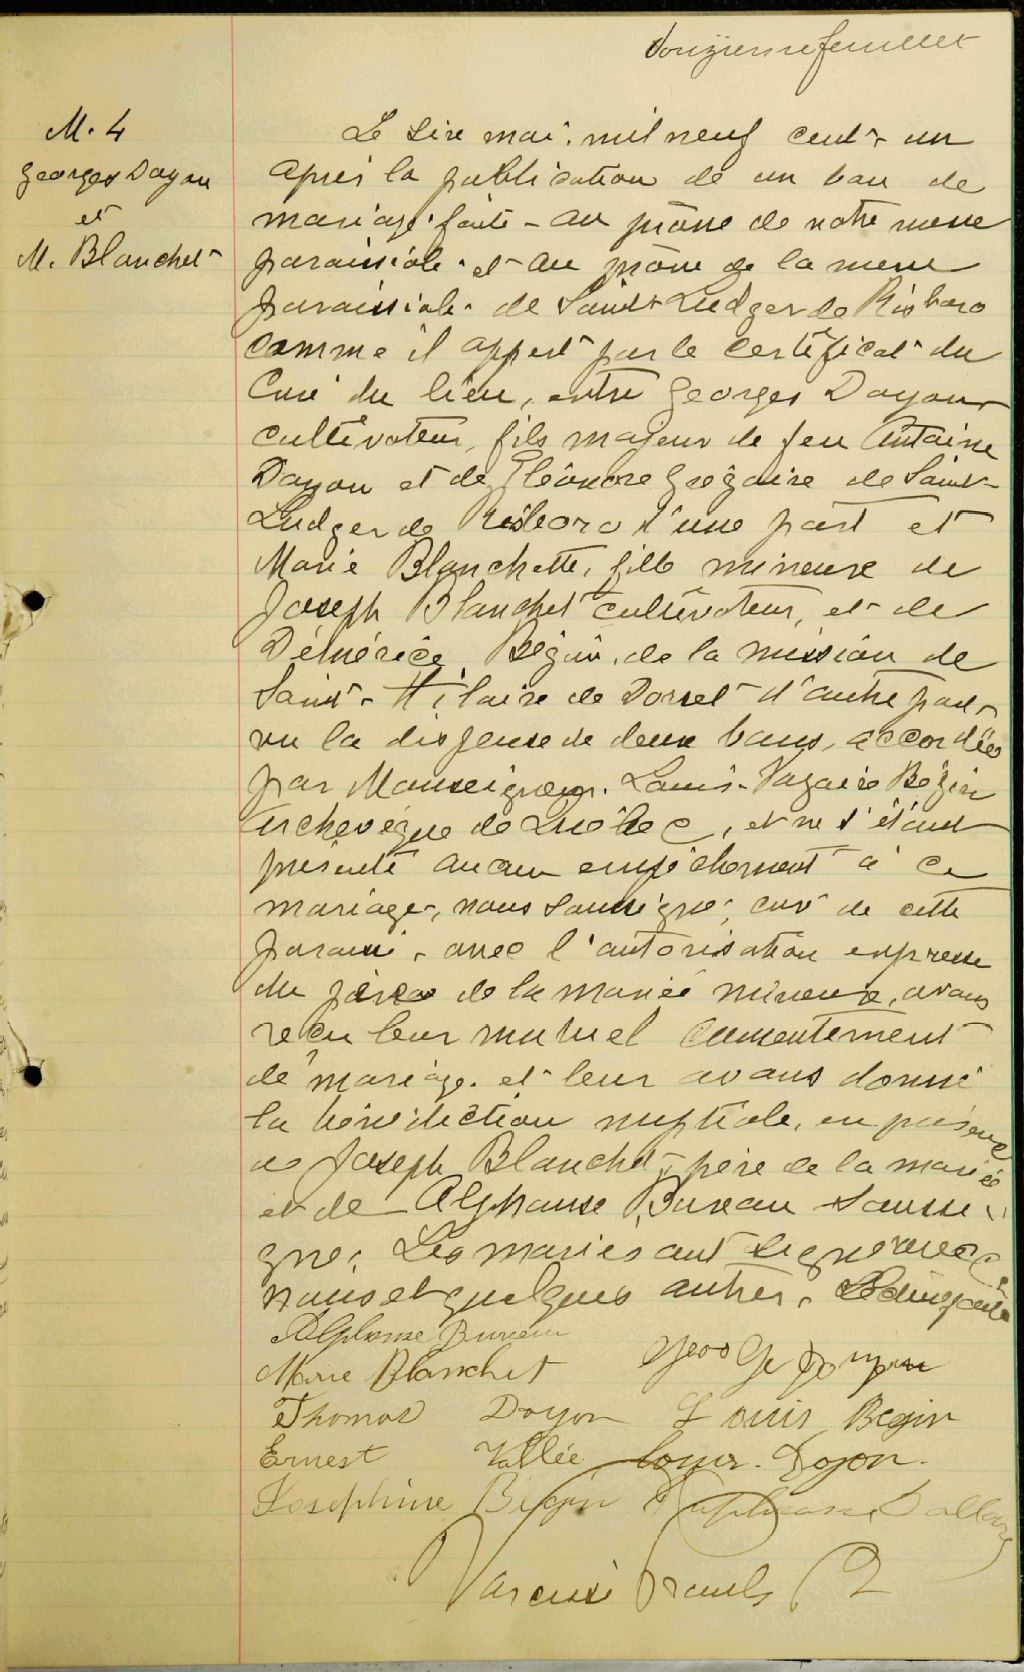 feuillet
M. 4
Georges Doyon
et
M. Blanchet
Le mai mil neuf cent un
après la publication de un ban de
mariage faite au prône de notre messe
paroissiale et au prône de la messe
paroissiale de Saint Ludger de Risboro
comme il appert par le certificat du
Curé du lieu, entre Georges Doyon
cultivateur, fils majeur de feu Antoine
Doyon et de Eléonore Grégoire de Saint
Ludger de Risboro d'une part et
Marie Blanchette, fille mineure de
Joseph Blanchet cultivateur, et de
Démérice Bégin, de la mission de
Saint-Hilaire de Dorset d'autre part
vu la dispense de deux bans, accordée
par Monseigneur Louis-Nazaire Bégin
Archevêque de Québec, et ne s'étant
présenté aucun empêchement à ce
mariage, nous soussigné, curé de cette
paroisse, avec l'autorisation expresse
du père de la mariée mineure, avons
reçu leur mutuel consentement
de mariage et leur avons donné
la bénédiction nuptiale, en présence
de Joseph Blanchet, père de la mariée
et de Alphonse Bureau soussi
gné. Les mariés ont signé avec
nous et quelques autres.
Alphonse Bureau
Marie Blanchet George Doyon
Thomas Doyon Louis Begin
Ernest Vallée Doyon.
Josephine Begin
Narcisse